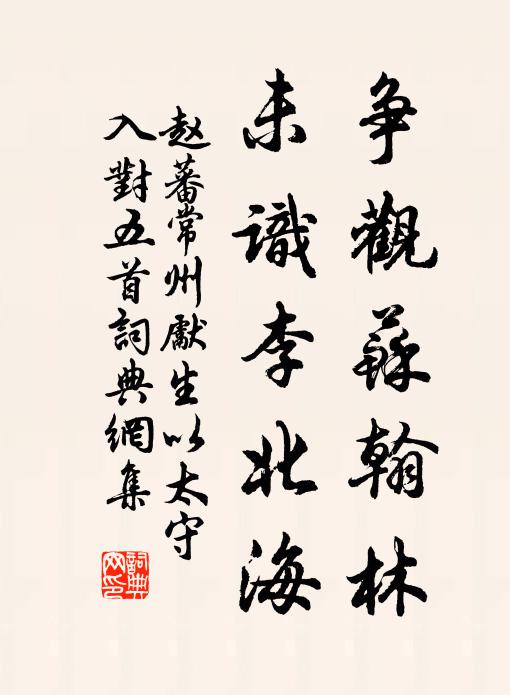 争觀蘇翰林
未識李北海
赵蕃常州獻生以太守
入對五首詞典網集
詞典
网印